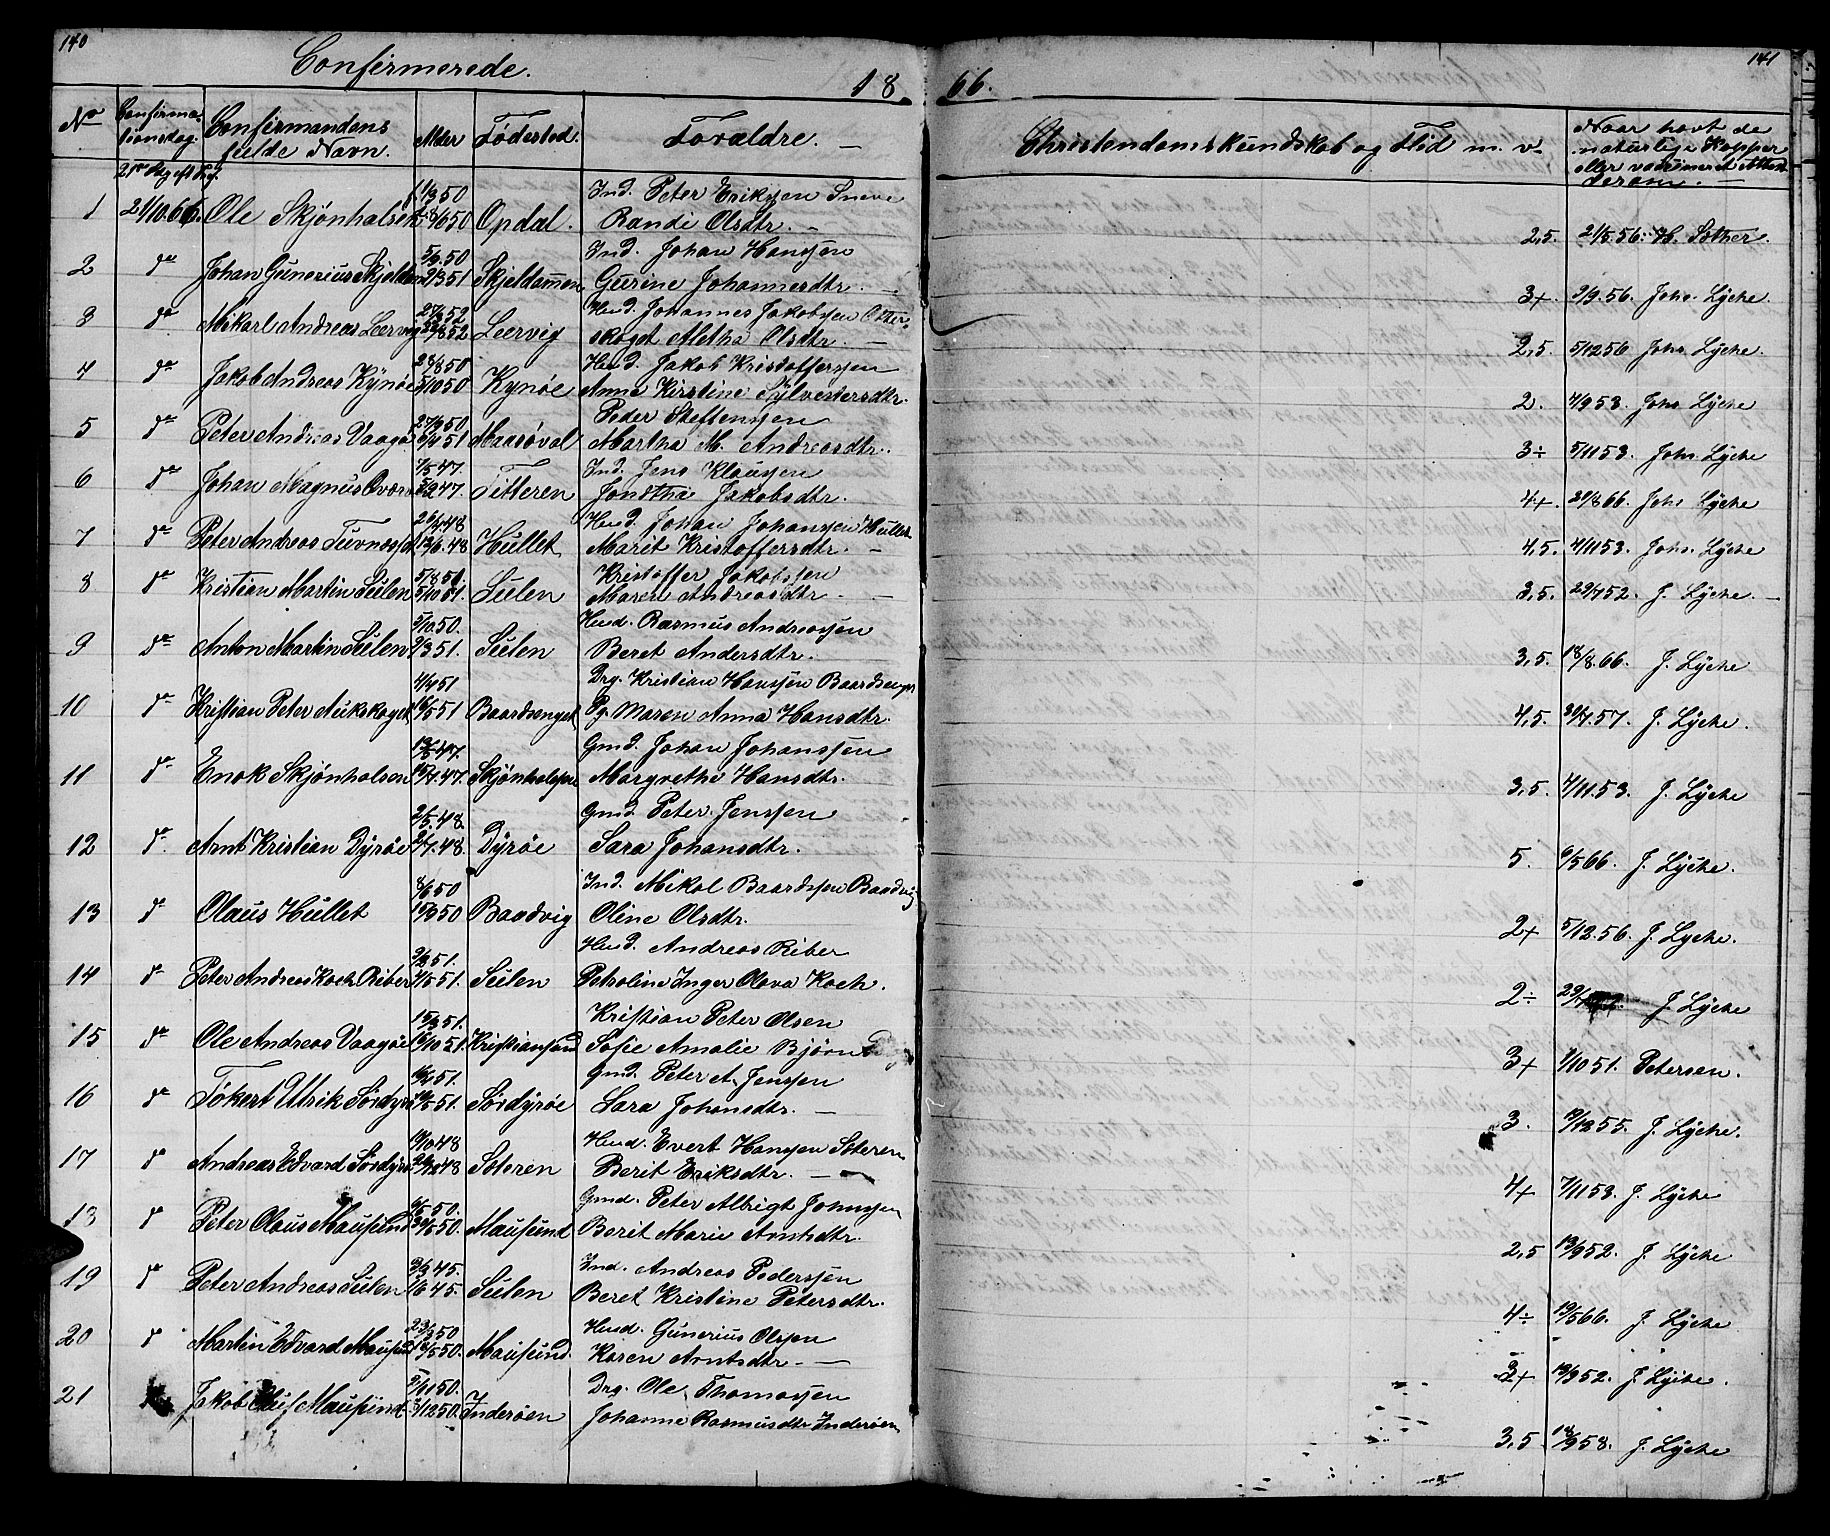 140
Confirmerede.
18
66.
141
No
Confirma-
tionsdag.
Confirmandens
fulde Navn.
Alder
Födested.
Forældre. —
Christendomskundskab og Flid m. v.
Naar havt de
naturlige Kopper
eller vaccineret
21 S.
1 21/10.66. Ole Skjönhalsen 50 Opdal. Ind. Peter Eriksen
Randi Olsdtr. — 2,5. 56. H. Sother.
2 do Johan Gunerius 50 51 Ind. Johan Hansen
Gurine Johannesdtr. — 3+. 2/9.56. Johs. Lyche.
3 do Mikael Andreas Leervig 52 Leervig Johannes Jakobsen Otter-
skaget Aletha Olsdtr. — 2,5. 5/12 56 Johs. Lyche.
4 do Jakob Andreas Kynöe 28/8 50 5/10 50 Kynöe Jakob Kristoffersen
Anne Kirstine Sylvestersdtr. 2. 4/9 53. Johs Lyche
5 do Peter Andreas Vaagö 50 51 Maasöval Peder Steffensen
Martha M. Andreasdtr. 3÷ 5/11 53. Johs. Lyche
6 do Johan Magnus 47. 47. Titteren Ind. Jens Klausen
Jakobsdtr. 4+. 66. Johs Lyche
7 do Peter Andreas 48 48 Hullet Johan Johansen Hullet
Marit Kristoffersdtr. — 4,5. 4/11 53. Johs. Lyche
8 do Kristian Martin Sulen 5/8 51 5/10 51. Sulen Kristoffer Jakobsen
Maren Andreasdtr. — 3,5. 52. J. Lyche. —
9 do Anton Martin Sulen 5/10.50. 51. Sulen Rasmus Andreasen
Beret Andersdtr. — 3,5. 18/8.66. J. Lyche
10 do Kristian Peter Aukskaget 51 51 Baardsenget Drg. Kristian Hansen Baardsenget
Pg. Maren Anna Hansdtr. 4,5. 57. J. Lyche.
11 do Enok Skjönhalsen 47. 47. Skjönhalsen Gmd. Johan Johansen
Margrethe Hansdtr. 3,5. 4/11.53. J. Lyche
12 do Arnt Kristian Dyröe 48. 48. Dyröe Gmd. Peter Jensen
Sara Johansdtr. 5. 6/5 66. J. Lyche.
13 do Olaus Hullet 8/6 50 50 Ind. Mikal Baardsen
Oline Olsdtr. 2+ 5/12.56. J. Lyche.
14 do Peter Andreas Koch Riber 51. 51. Sulen Andreas Riber
Petroline Inger Olava Koch. 2÷ J. Lyche
15 do Ole Andreas Vaagöe 51. 51. Kristiansund Kristian Peter Olsen
Sofie Amalie Björn 3+ 10 51. Petersen.
16 do Tökert Ulrik Sördyrö 51. 51. Sördyröe Gmd. Peter A. Jensen
Sara Johansdtr. — 3. 12 55. J. Lyche.
17 do Andreas Edvard Sördyrö 48 48 Soteren Evert Hansen Soteren
Berit Eriksdtr. — 4+ 7/11 53. J. Lyche
18 do Peter Olaus Mausund 50. 50. Mausund Gmd. Peter Albrigt Johnsen
Berit Marie Arntsdtr. 2,5 13/9 52. J. Lyche
19 do Peter Andreas Sulen 45. 45. Sulen Ind. Andreas Pedersen
Beret Kristine Petersdtr. 4÷ 19/5 66. J. Lyche
20 do Martin Edvard Mausund 50 50. Mausund. Gunerius Olsen
Karen Arntsdtr. — 3+ 19/9 52. J. Lyche.
21 Jakob Oluf Mausund 11 50. 12 50. Inderöen Drg. Ole Thomasen
Johanne Rasmusdtr Inderöen 3,5 18/9 58. J. Lyche